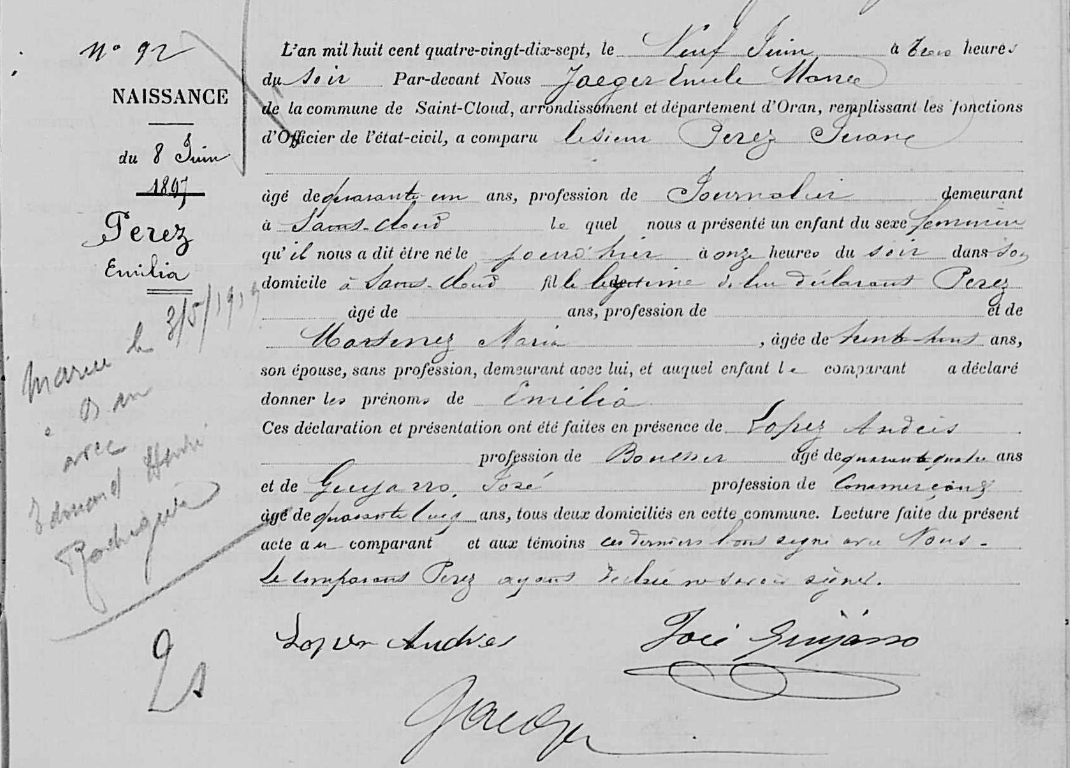 N° 92
NAISSANCE
du 8 Juin
1897
Perez
Emilia
Marié le 3/5/1919
à Oran
avec
Edouard Henri
Rodriguez
L'an mil huit cent quatre-vingt-dix-sept, le Neuf Juin à trois heures
du soir Par-devant Nous Jaeger Emile Maire
de la commune de Saint-Cloud, arrondissement et département d'Oran, remplissant les fonctions
d'Officier de l'état-civil, a comparu le sieur Perez Juan
âgé de quarante-un ans, profession de Journalier demeurant
à Saint-Cloud le quel nous a présenté un enfant du sexe féminin
qu'il nous a dit être né le jour d'hier à onze heures du soir dans son
domicile à Saint-Cloud fille légitime de lui déclarant Perez
âgé de ans, profession de et de
Martinez Maria, âgée de trente-huit ans,
son épouse, sans profession, demeurant avec lui, et auquel enfant le comparant a déclaré
donner les prénoms de Emilia
Ces déclaration et présentation ont été faites en présence de Lopez Andrès
profession de âgé de quarante quatre ans
et de Guijarro, José profession de Commerçant
âgé de quarante cinq ans, tous deux domiciliés en cette commune. Lecture faite du présent
acte au comparant et aux témoins ces derniers l'ont signé avec Nous.
Le comparant Perez ayant déclaré ne savoir signer.
Lopez Andres
José Guijarro
Jaeger